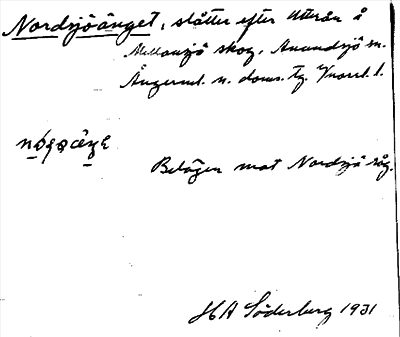 Nordsjöänget, slåtter efter Uttrån å
Mellansjö skog, Anundsjö sn.
Ångerml. n. doms. tg. Vnorrl. l.
Belägen mot Nordsjö såg.
H A Söderberg 1931